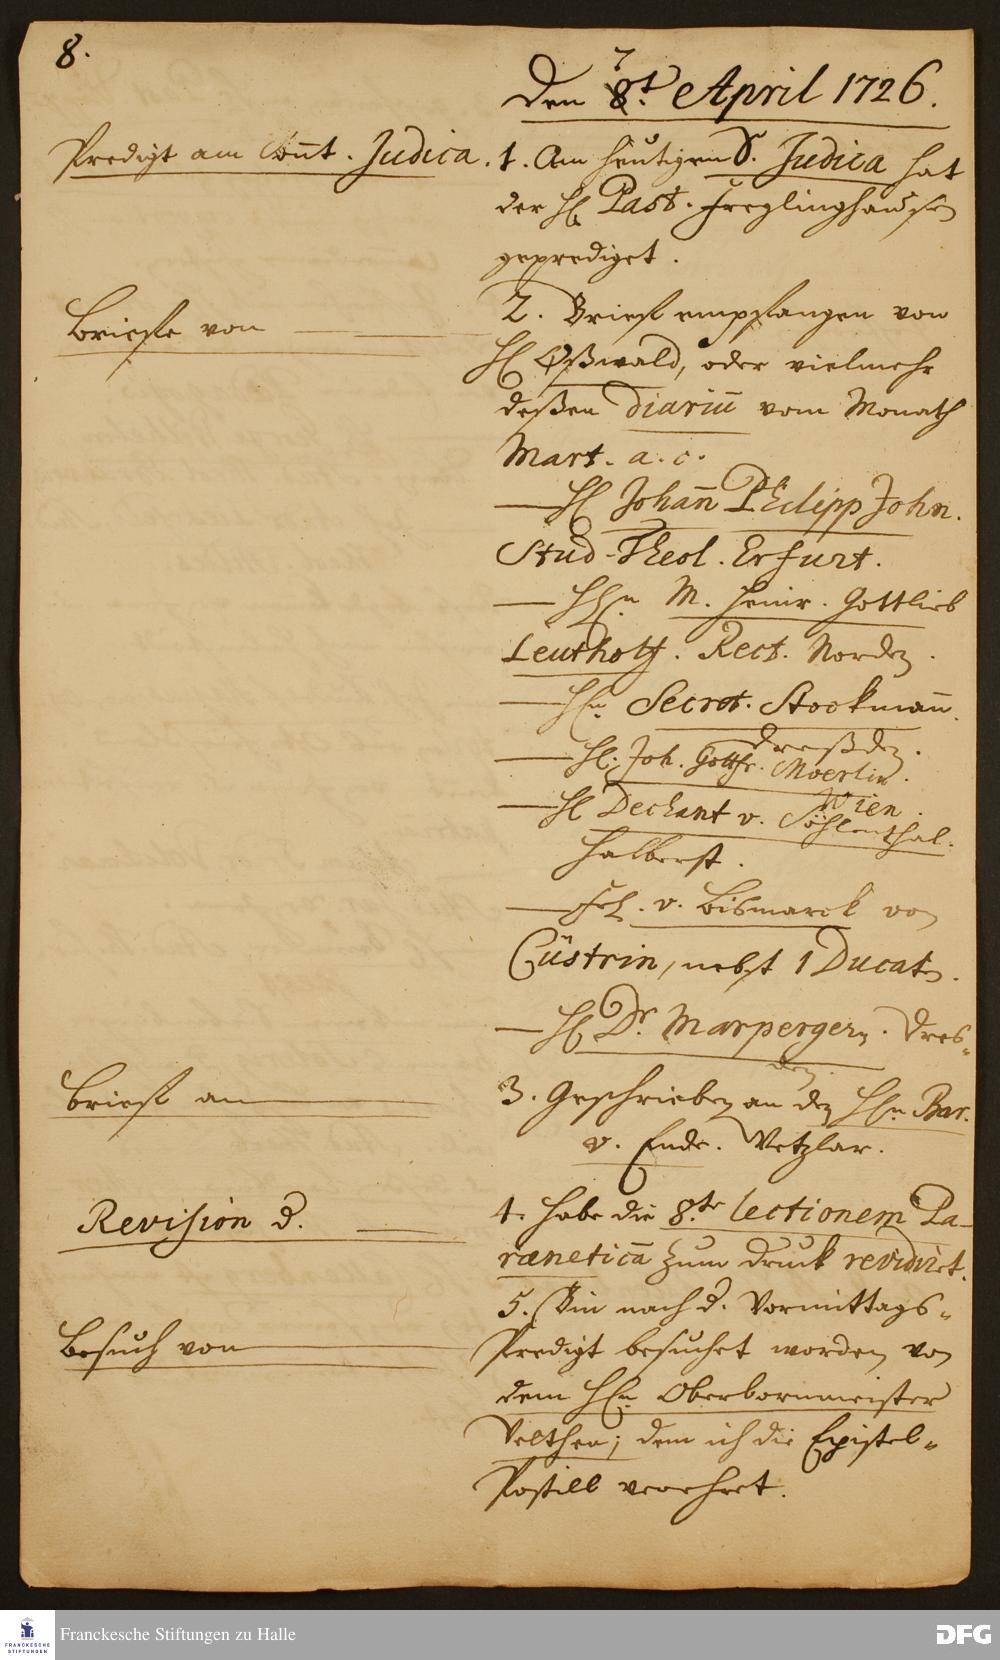 8.
Den 8t. April 1726.
7
Predigt am Sonnt. Judica.
1. Am heutigen S. Judica hat
der H. Past. Freylinghausen
geprediget.
Briefe von
2. Brief empfangen von
H Oßwald, oder vielmehr
deßen diariū vom Monath
Mart. a. c.
— H Johañ Philipp John.
Stud. Theol. Erfurt.
— HEn M. Heinr. Gottlieb
Leutholf. Rect. Norden.
— HEn Secret. Stockmañ.
Dreßden.
— H. Joh. Gottfr. Moerlin.
Wien.
— H Dechant v. Söhlenthal.
Halberst.
— Frl. v. Bismarck von
Cüstrin, nebst 1 Ducaten.
— H Dr. Marpergern. Dres-
den.
Brief an
3. Geschrieben an den HEn Bar.
v. Ende. Wetzlar.
Revision d.
4. Habe die 8.te lectionem Pa-
ræneticā zum Druck revidiret.
Besuch von
5. Bin nach d. Vormittags-
Predigt besuchet worden von
dem HEn Oberbornmeister
Velthen; dem ich die Epistel-
Postill verehret.
FRANCKESCHE
STIFTUNGEN
Franckesche Stiftungen zu Halle
DFG